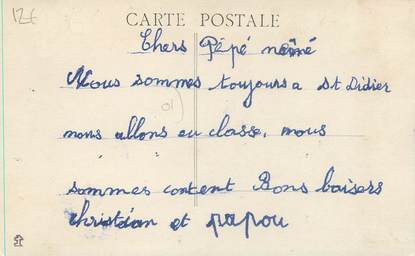 12€
CARTE POSTALE
Chers Pépé mémé
Nous sommes toujours a St Didier
01
nous allons en classe, nous
sommes content Bons baisers
christian et papou